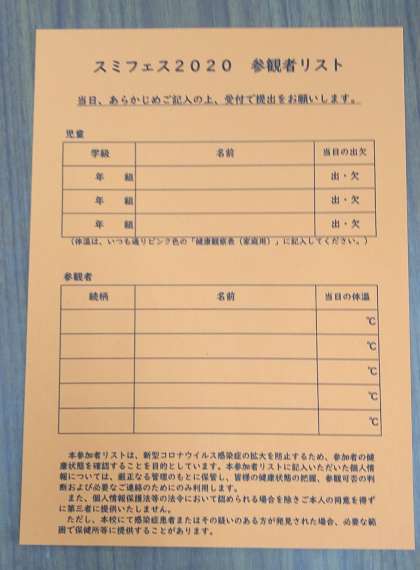 スミフェス2020　参観者リスト
当日、あらかじめご記入の上、受付で提出をお願いします。
児童
学級　名前　当日の出欠
年　組　出・欠
年　組　出・欠
年　組　出・欠
（体温は、いつも通りピンク色の「健康観察表（家庭用）」に記入してください。）
参観者
続柄　名前　当日の体温
℃
℃
℃
℃
℃
本参加者リストは、新型コロナウイルス感染症の拡大を防止するため、参加者の健
康状態を確認することを目的としています。本参加者リストに記入いただいた個人情
報については、厳正なる管理のもとに保管し、皆様の健康状態の把握、参観可否の判
断および必要なご連絡のためにのみ利用します。
また、個人情報保護法等の法令において認められる場合を除きご本人の同意を得ず
に第三者に提供いたしません。
ただし、本校にて感染症患者またはその疑いのある方が発見された場合、必要な範
囲で保健所等に提供することがあります。